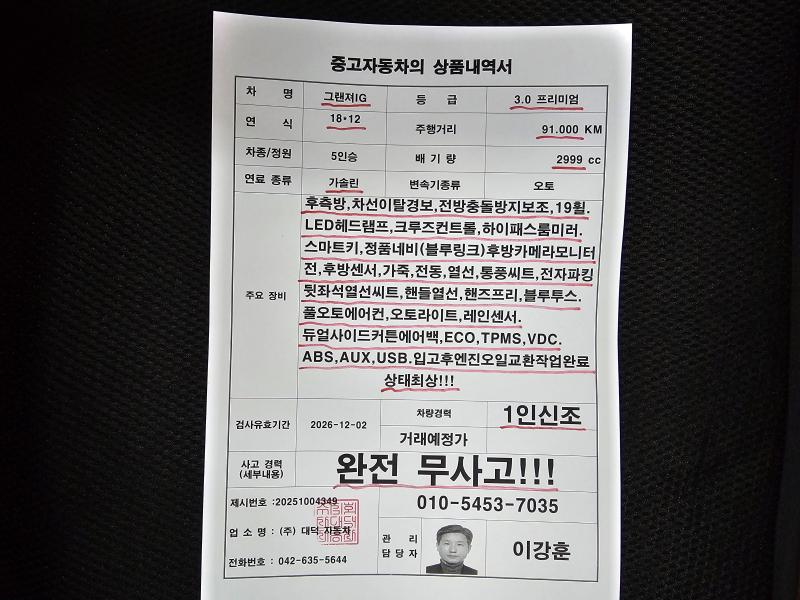 중고자동차의 상품내역서
차 명 그랜져IG 등 급 3.0 프리미엄
연 식 18•12 주행거리 91.000 KM
차종/정원 5인승 배 기 량 2999 cc
연료 종류 가솔린 변속기종류 오토
주요 장비
후측방,차선이탈경보,전방충돌방지보조,19휠.
LED헤드램프,크루즈컨트롤,하이패스룸미러.
스마트키,정품네비(블루링크)후방카메라모니터
전,후방센서,가죽,전동,열선,통풍씨트,전자파킹
뒷좌석열선씨트,핸들열선,핸즈프리,블루투스.
풀오토에어컨,오토라이트,레인센서.
듀얼사이드커튼에어백,ECO,TPMS,VDC.
ABS,AUX,USB.입고후엔진오일교환작업완료
상태최상!!!
검사유효기간 2026-12-02 차량경력 1인신조
거래예정가
사고 경력
(세부내용)
완전 무사고!!!
제시번호 :20251004349 010-5453-7035
업 소 명 : (주) 대덕 자동차
전화번호 : 042-635-5644
관 리
담 당 자
이강훈